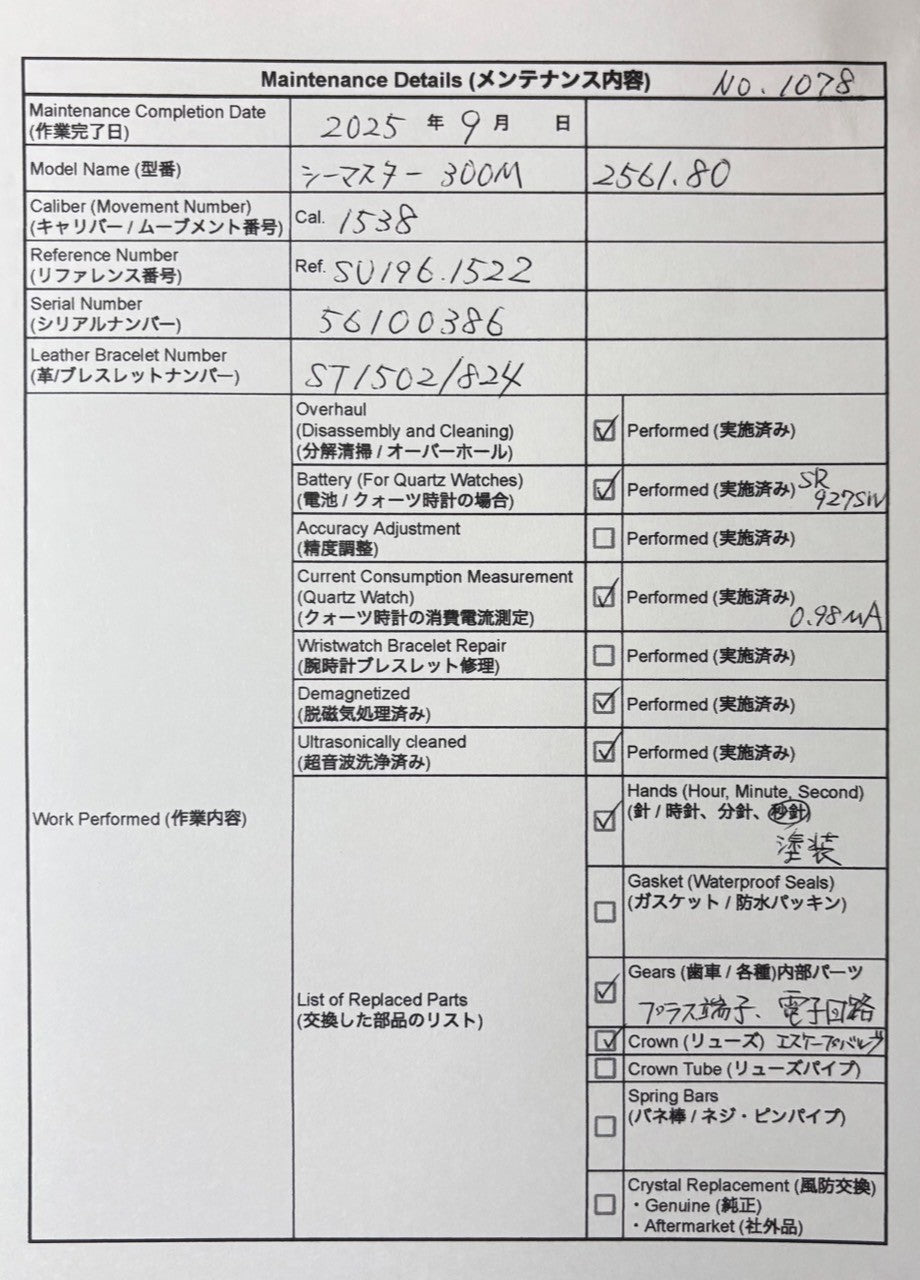 Maintenance Details (メンテナンス内容) No. 1078
Maintenance Completion Date
(作業完了日)
2025 年 9 月 日
Model Name (型番)
シーマスター 300M
2561.80
Caliber (Movement Number)
(キャリバー / ムーブメント番号)
Cal. 1538
Reference Number
(リファレンス番号)
Ref. SU196.1522
Serial Number
(シリアルナンバー)
56100386
Leather Bracelet Number
(革/ブレスレットナンバー)
ST1502/824
Work Performed (作業内容)
Overhaul
(Disassembly and Cleaning)
(分解清掃 / オーバーホール)
☑ Performed (実施済み)
Battery (For Quartz Watches)
(電池 / クォーツ時計の場合)
☑ Performed (実施済み) SR
927SW
Accuracy Adjustment
(精度調整)
☐ Performed (実施済み)
Current Consumption Measurement
(Quartz Watch)
(クォーツ時計の消費電流測定)
☑ Performed (実施済み)
0.98μA
Wristwatch Bracelet Repair
(腕時計ブレスレット修理)
☐ Performed (実施済み)
Demagnetized
(脱磁気処理済み)
☑ Performed (実施済み)
Ultrasonically cleaned
(超音波洗浄済み)
☑ Performed (実施済み)
List of Replaced Parts
(交換した部品のリスト)
☑ Hands (Hour, Minute, Second)
(針 / 時針、分針、秒針)
塗装
☐ Gasket (Waterproof Seals)
(ガスケット / 防水パッキン)
☑ Gears (歯車 / 各種)内部パーツ
プラス端子、電子回路
☑ Crown (リューズ) エスケープバルブ
☐ Crown Tube (リューズパイプ)
☐ Spring Bars
(バネ棒 / ネジ・ピンパイプ)
☐ Crystal Replacement (風防交換)
・Genuine (純正)
・Aftermarket (社外品)